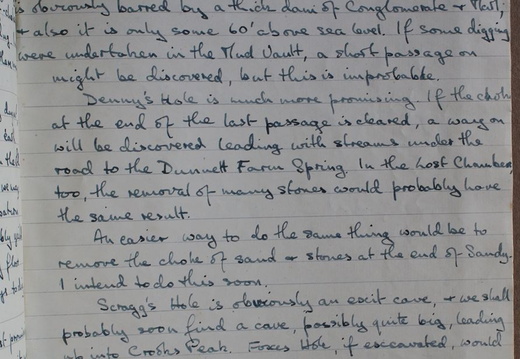 is obviously barred by a thick dam of Conglomerate + Marl;
+ also it is only some 60' above sea level. If some digging
were undertaken in the Mud Vault, a short passage on
might be discovered, but this is improbable.
Denny's Hole is much more promising. If the choke
at the end of the last passage is cleared, a way on
will be discovered leading with streams under the
road to the Dunnett Farm Spring. In the Lost Chamber,
too, the removal of many stones would probably have
the same result.
An easier way to do the same thing would be to
remove the choke of sand + stones at the end of Sandy.
I intend to do this soon.
Scragg's Hole is obviously an exit cave, + we shall
probably soon find a cave, possibly quite big, leading
up into Crooks Peak. Foxes Hole, if excavated, would